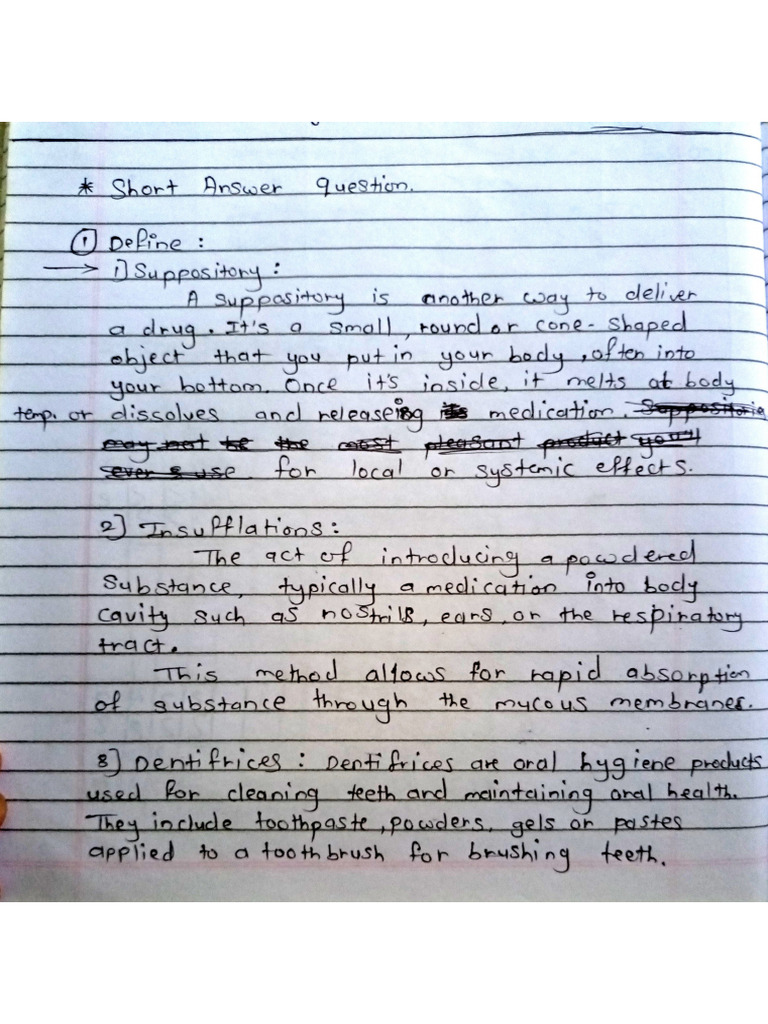 * Short Answer question.
① Define :
→ i) Suppository :
A suppository is another way to deliver
a drug. It's a small, round or cone-shaped
object that you put in your body, often into
your bottom. Once it's inside, it melts at body
temp. or dissolves and releaseing its medication. Suppositories
may not be the most pleasant product you'll
ever s use for local or systemic effects.
2] Insufflations :
The act of introducing a powdered
substance, typically a medication into body
cavity such as nostrils, ears, or the respiratory
tract.
This method allows for rapid absorption
of substance through the mucous membranes.
3] Dentifrices : Dentifrices are oral hygiene products
used for cleaning teeth and maintaining oral health.
They include toothpaste, powders, gels or pastes
applied to a toothbrush for brushing teeth.